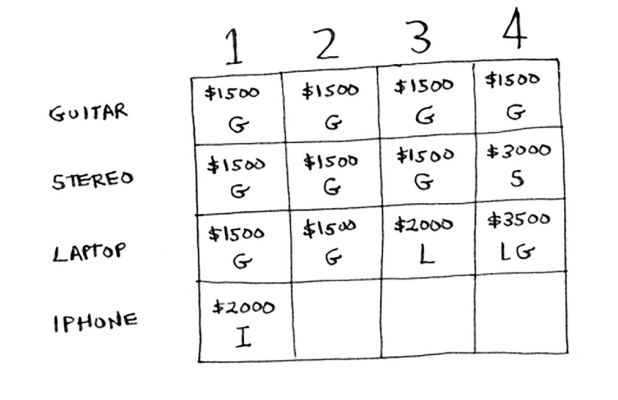 1 2 3 4
GUITAR $1500 G $1500 G $1500 G $1500 G
STEREO $1500 G $1500 G $1500 G $3000 S
LAPTOP $1500 G $1500 G $2000 L $3500 LG
IPHONE $2000 I